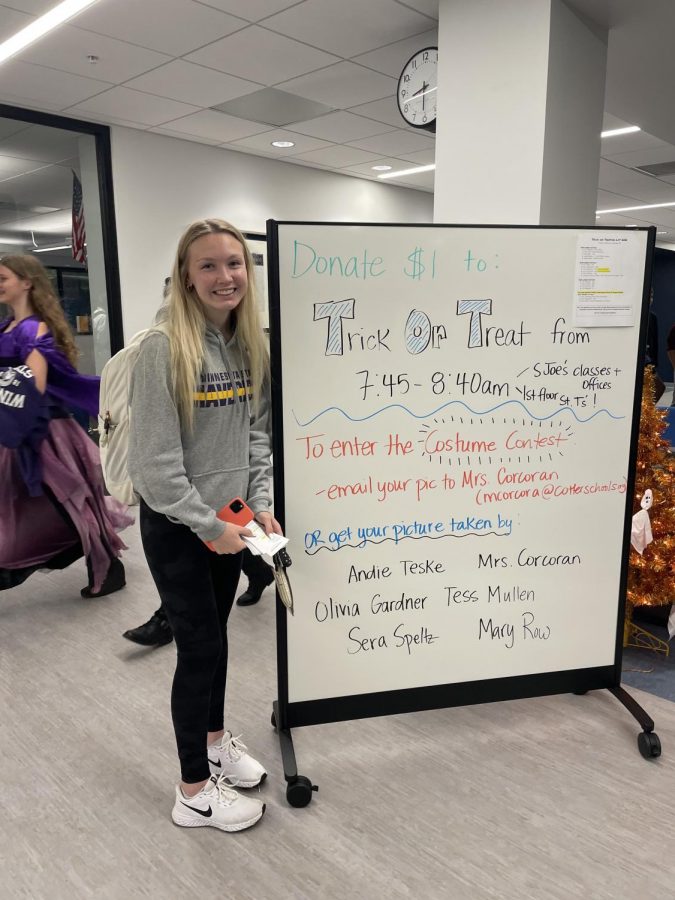 Donate $1 to:
Trick Or Treat from
7:45 - 8:40am
S Joe's classes +
Offices
1st floor St. T's!
To enter the Costume Contest
- email your pic to Mrs. Corcoran
(mcorcora@cotterschools.org)
OR get your picture taken by:
Andie Teske Mrs. Corcoran
Olivia Gardner Tess Mullen
Sera Speltz Mary Row
MAVERICKS
WIN